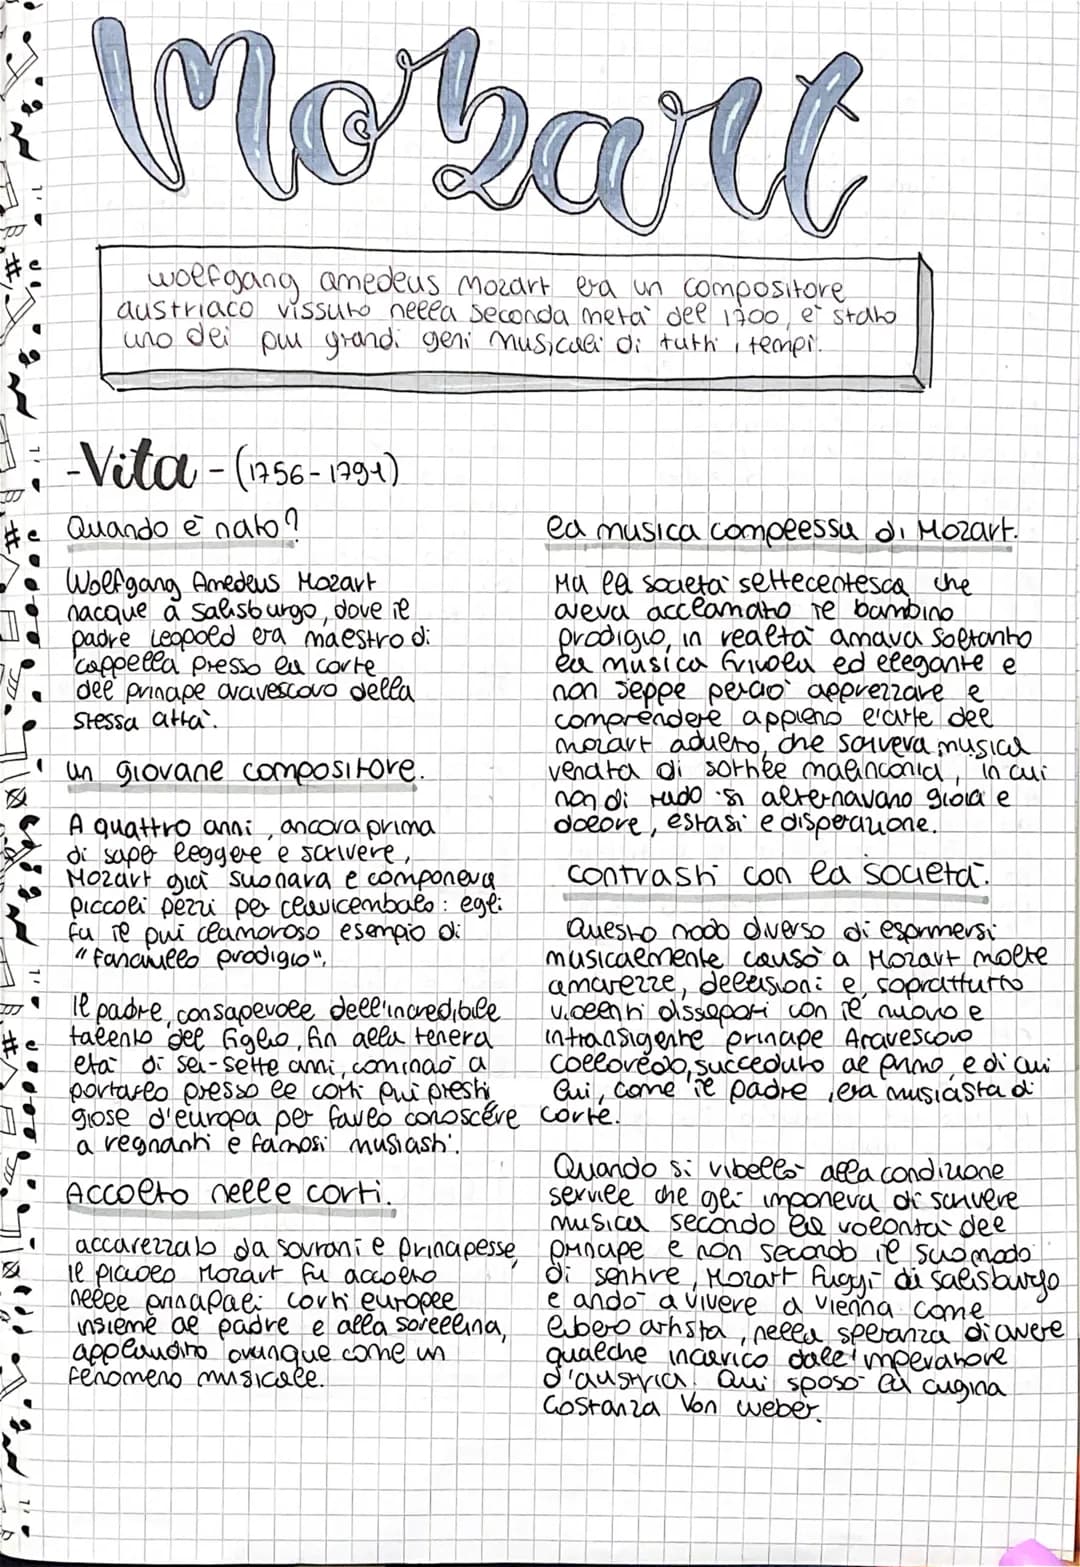 Mozart
wolfgang amedeus Mozart era un compositore
austriaco vissuto nella seconda metà del 1700, e' stato
uno dei piu grandi geni musicali di tutti i tempi.
-Vita-(1756-1791)
Quando è nato?
Wolfgang Amedeus Mozart
nacque a Salisburgo, dove il
padre Leopold era maestro di
cappella presso la corte
del principe arcivescovo della
stessa città.
un giovane compositore.
A quattro anni, ancora prima
di saper leggere e scrivere,
Mozart già suonava e componeva
piccoli pezzi per clavicembalo: egli
fu il più clamoroso esempio di
"fanciullo prodigio".
Il padre, consapevole dell'incredibile
talento del figlio, fin alla tenera
età di sei-sette anni, cominciò a
portarlo presso le corti più presti
giose d'europa per farlo conoscere
a regnanti e famosi musicisti.
Accolto nelle corti.
accarezzato da sovrani e principesse,
il piccolo Mozart fu accolto
nelle principali corti europee
insieme al padre e alla sorellina,
applaudito ovunque come un
fenomeno musicale.
la musica complessa di Mozart.
Ma la società settecentesca, che
aveva acclamato il bambino
prodigio, in realtà amava soltanto
la musica frivola ed elegante e
non seppe perciò apprezzare e
comprendere appieno l'arte del
mozart adulto, che scriveva musica
venata di sottile malinconia, in cui
non di rado si alternavano gioia e
dolore, estasi e disperazione.
contrasti con la società.
Questo modo diverso di esprimersi
musicalmente causò a Mozart molte
amarezze, delusioni e, soprattutto
violenti dissapori con il nuovo e
intransigente principe Arcivescovo
Colloredo, succeduto al primo, e di cui
lui, come il padre, era musicista di
corte.
Quando si ribellò alla condizione
servile che gli imponeva di scrivere
musica secondo la volontà del
principe e non secondo il suo modo
di sentire, Mozart fuggì di Salisburgo
e andò a vivere a Vienna come
libero artista, nella speranza di avere
qualche incarico dall'imperatore
d'austria. Qui sposò la cugina
Costanza Von Weber.